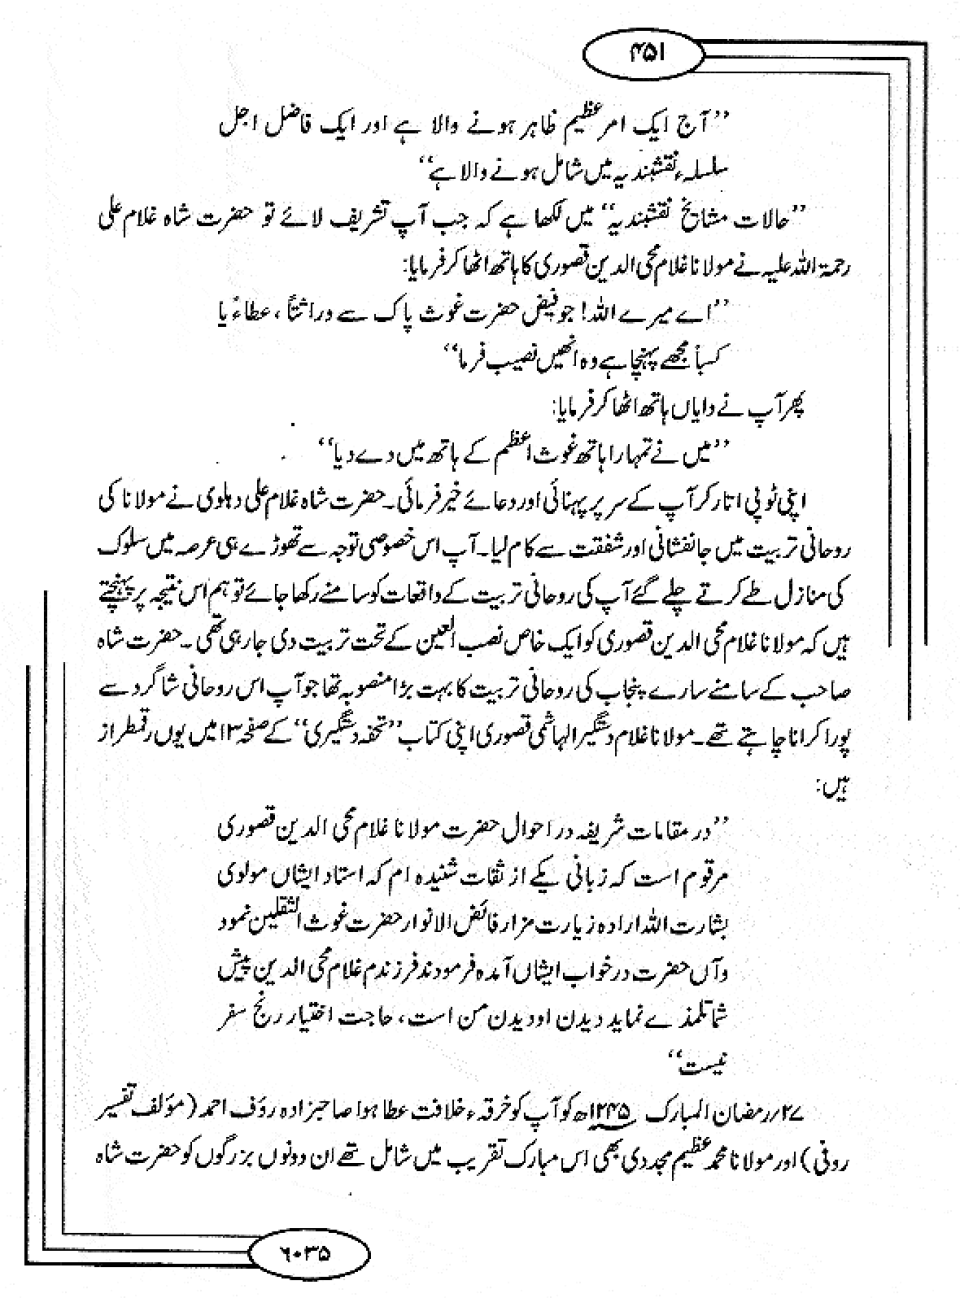 ۴۵۱
’’آج ایک امر عظیم ظاہر ہونے والا ہے اور ایک فاضل اجل
سلسلہء نقشبندیہ میں شامل ہونے والا ہے‘‘
’’حالات مشایخ نقشبندیہ‘‘ میں لکھا ہے کہ جب آپ تشریف لائے تو حضرت شاہ غلام علی
رحمۃ اللہ علیہ نے مولانا غلام محی الدین قصوری کا ہاتھ اٹھا کر فرمایا:
’’اے میرے اللہ! جو فیض حضرت غوث پاک سے وراثتاً، عطاءً یا
کسباً مجھے پہنچا ہے وہ انھیں نصیب فرما‘‘
پھر آپ نے دایاں ہاتھ اٹھا کر فرمایا:
’’میں نے تمہارا ہاتھ غوث اعظم کے ہاتھ میں دے دیا‘‘
اپنی ٹوپی اتار کر آپ کے سر پر پہنائی اور دعائے خیر فرمائی۔ حضرت شاہ غلام علی دہلوی نے مولانا کی
روحانی تربیت میں جانفشانی اور شفقت سے کام لیا۔ آپ اس خصوصی توجہ سے تھوڑے ہی عرصہ میں سلوک
کی منازل طے کرتے چلے گئے آپ کی روحانی تربیت کے واقعات کو سامنے رکھا جائے تو ہم اس نتیجہ پر پہنچتے
ہیں کہ مولانا غلام محی الدین قصوری کو ایک خاص نصب العین کے تحت تربیت دی جا رہی تھی۔ حضرت شاہ
صاحب کے سامنے سارے پنجاب کی روحانی تربیت کا بہت بڑا منصوبہ تھا جو آپ اس روحانی شاگرد سے
پورا کرانا چاہتے تھے۔ مولانا غلام دستگیر الہاشمی قصوری اپنی کتاب ’’تحفہ دستگیری‘‘ کے صفحہ ۱۳ میں یوں رقمطراز
ہیں:
’’در مقامات شریفہ در احوال حضرت مولانا غلام محی الدین قصوری
مرقوم است کہ زبانی یکے از ثقات شنیدہ ام کہ استاد ایشاں مولوی
بشارت اللہ ارادہ زیارت مزار فائض الانوار حضرت غوث الثقلین نمود
وآں حضرت در خواب ایشاں آمدہ فرمودند فرزندم غلام محی الدین پیش
شما تلمذ ے نماید دیدن او دیدن من است، حاجت اختیار رنج سفر
نیست‘‘
۲۷/رمضان المبارک ۱۲۳۵ھ کو آپ کو خرقہء خلافت عطا ہوا صاحبزادہ رؤف احمد (مؤلف تفسیر
روفی) اور مولانا محمد عظیم مجددی بھی اس مبارک تقریب میں شامل تھے ان دونوں بزرگوں کو حضرت شاہ
۶۰۳۵